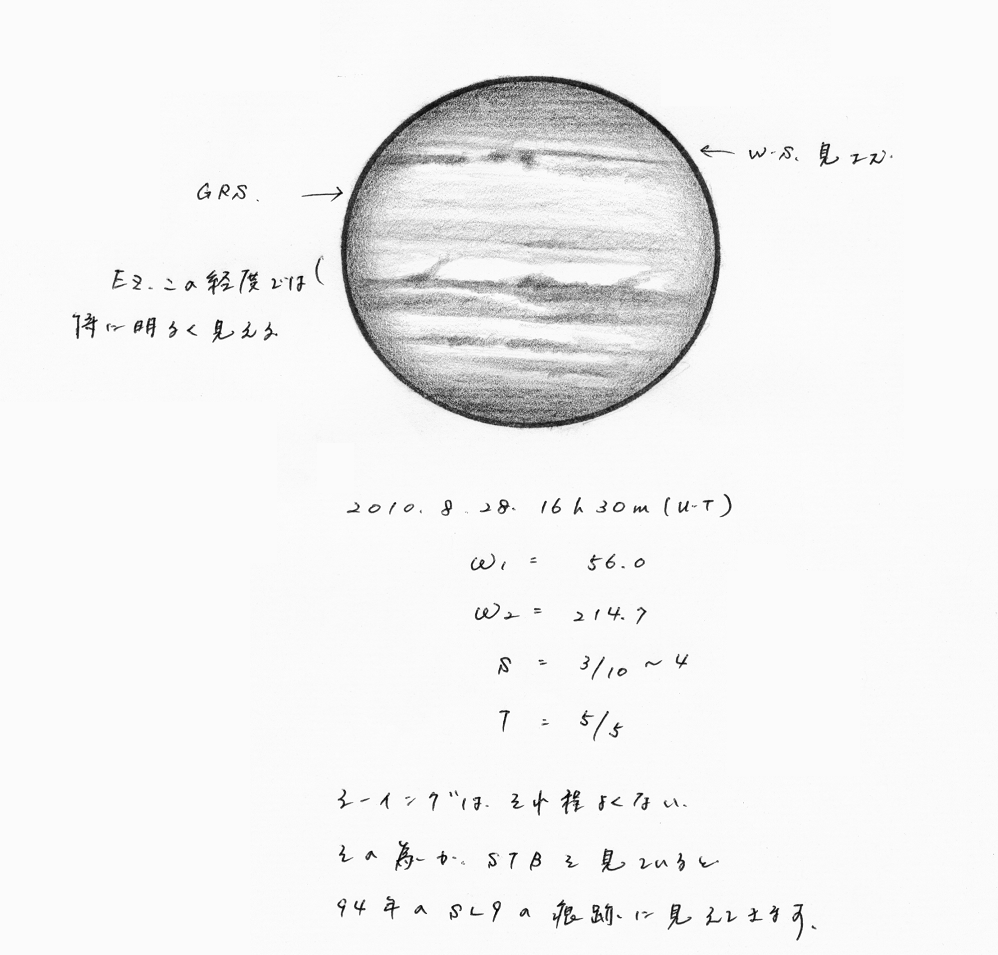 W.S. 見エズ.
GRS.
EZ.この経度では
特に明るく見える
2010. 8. 28. 16h 30m (U.T)
ω1 = 56.0
ω2 = 214.7
S = 3/10 ~ 4
T = 5/5
シーイングは.それ程よくない.
その為か. STBを見ていると
94年のSL9の痕跡に見えてます.